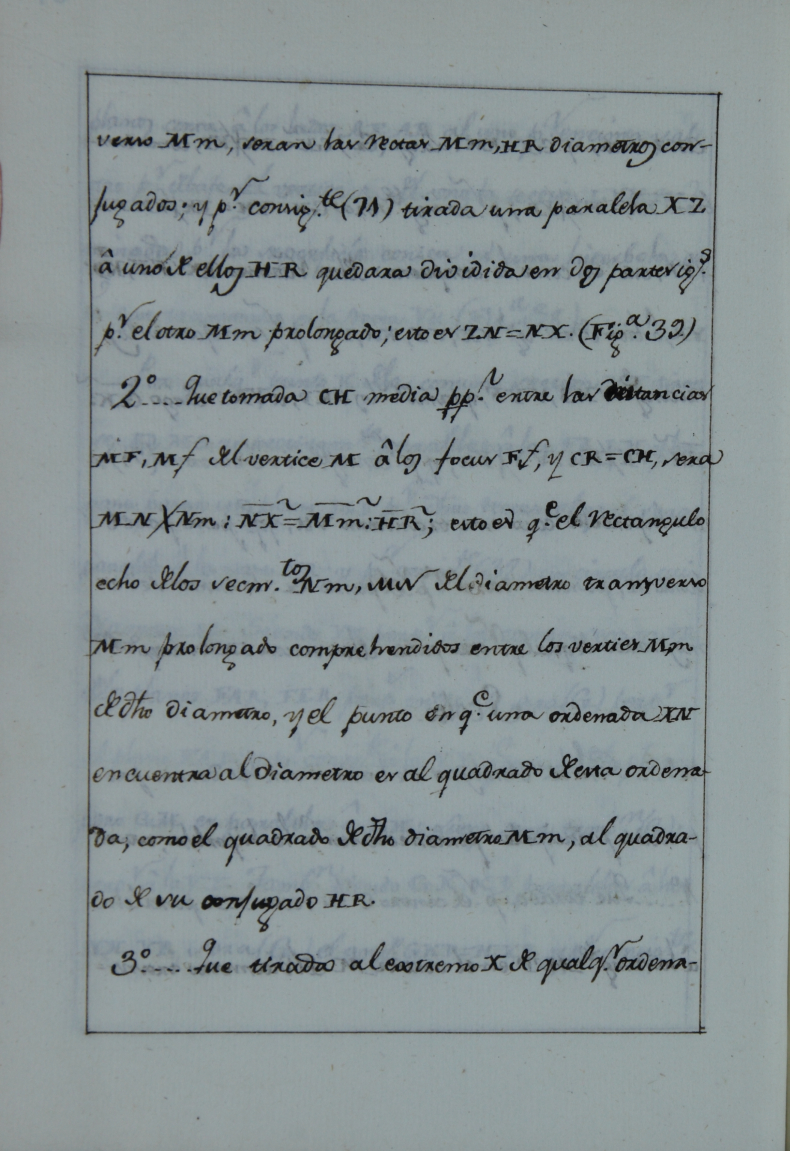 verso Mm, seran las rectas Mm, HR diametros con-
jugados; y p.r consig.te (71) tirada una paralela XZ
â uno de ellos HR quedara dividida en dos partes ig.s
p.r el otro Mm prolongado; esto es ZN=NX. (Fig.a 39)
2.o .... Que tomada CH media pp.l entre las distancias
MF, Mf del vertice M â los focus Ff, y CR=CH, sera
MN×Nm : NX² = Mm² : HR²; esto es q.e el rectangulo
echo de los secm.tos Nm, MN del diametro transverso
Mm prolongado comprehendidos entre los verties Mm
de dho diametro, y el punto en q.e una ordenada XN
encuentra al diametro es al quadrado de esta ordena-
da, como el quadrado de dho diametro Mm, al quadra-
do de su conjugado HR.
3.o .... Que tirados al eostremo X de qualq.r ordena-